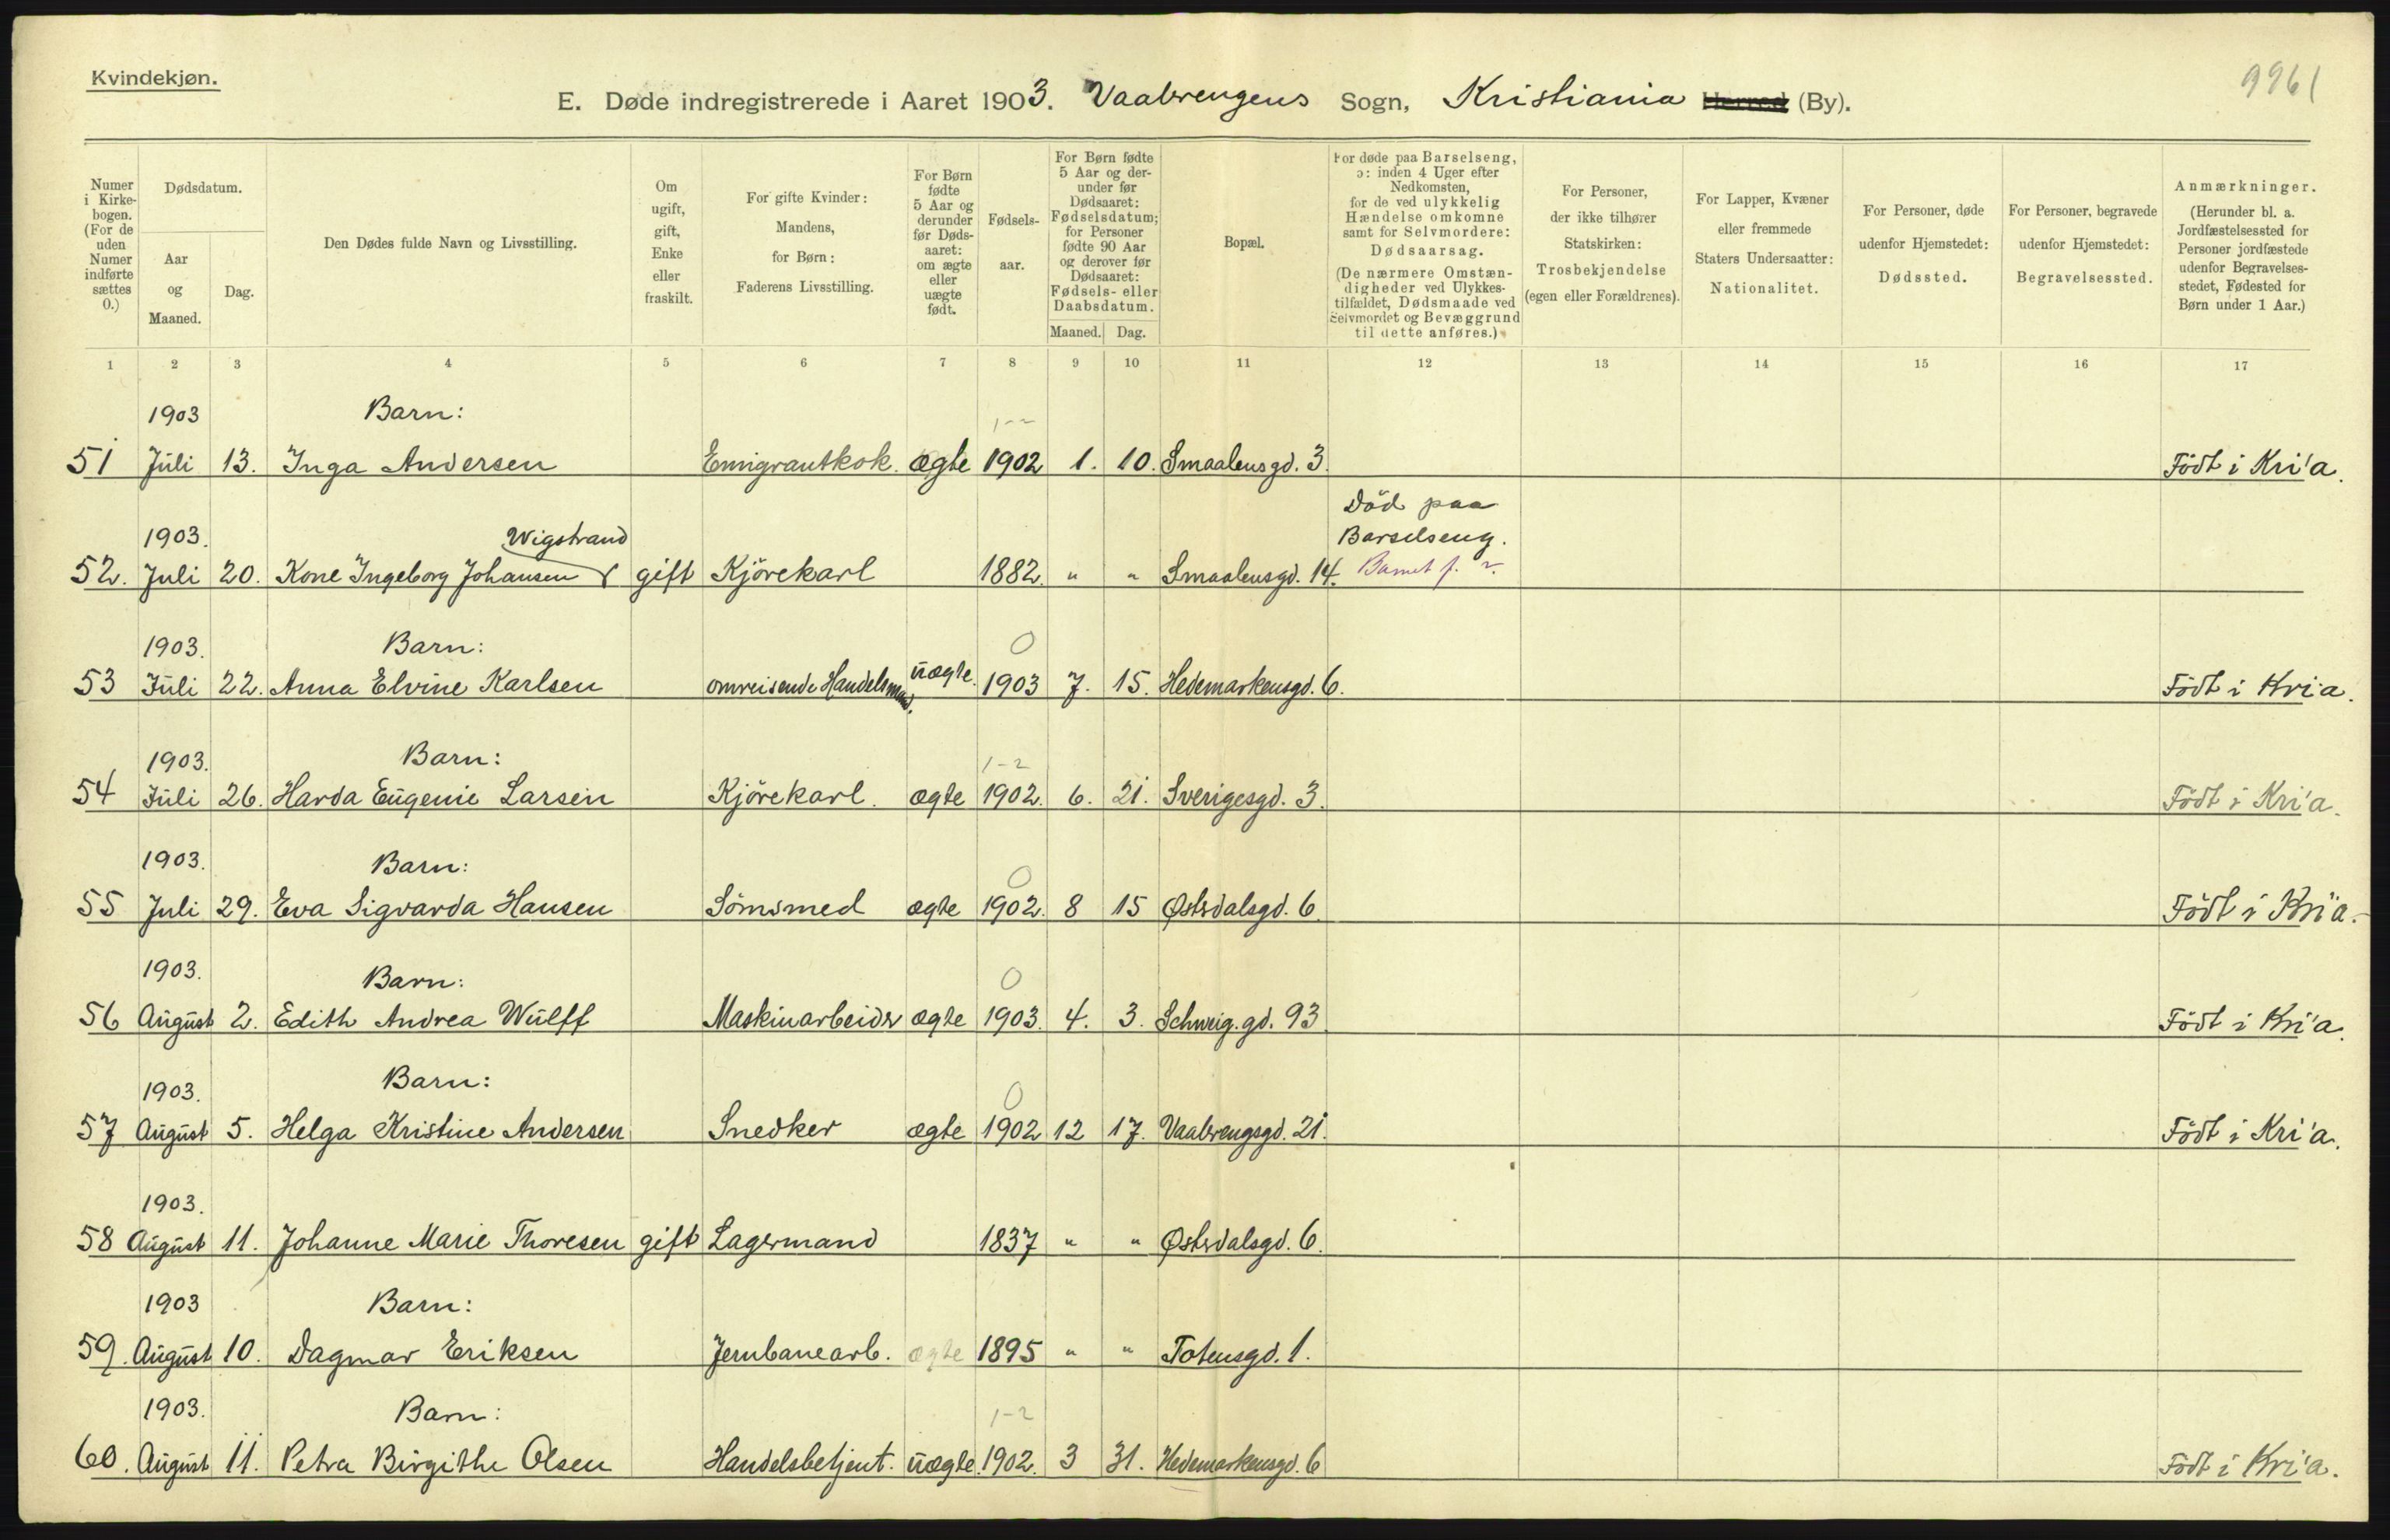 Kvindekjøn.
E. Døde indregistrerede i Aaret 1903. Vaalerengens Sogn, Kristiania Herred (By).
9961
Numer i Kirkebogen. (For de uden Numer indførte sættes 0.)
Dødsdatum.
Aar og Maaned.
Dag.
Den Dødes fulde Navn og Livsstilling.
Om ugift, gift, Enke eller fraskilt.
For gifte Kvinder: Mandens, for Børn: Faderens Livsstilling.
For Børn fødte 5 Aar og derunder før Dødsaaret: om ægte eller uægte født.
Fødselsaar.
For Børn fødte 5 Aar og derunder før Dødsaaret: Fødselsdatum; for Personer fødte 90 Aar og derover før Dødsaaret: Fødsels- eller Daabsdatum.
Maaned. Dag.
Bopæl.
For døde paa Barselseng, ɔ: inden 4 Uger efter Nedkomsten, for de ved ulykkelig Hændelse omkomne samt for Selvmordere: Dødsaarsag. (De nærmere Omstændigheder ved Ulykkestilfældet, Dødsmaade ved Selvmordet og Bevæggrund til dette anføres.)
For Personer, der ikke tilhører Statskirken: Trosbekjendelse (egen eller Forældrenes).
For Lapper, Kvæner eller fremmede Staters Undersaatter: Nationalitet.
For Personer, døde udenfor Hjemstedet: Dødssted.
For Personer, begravede udenfor Hjemstedet: Begravelsessted.
Anmærkninger. (Herunder bl. a. Jordfæstelsessted for Personer jordfæstede udenfor Begravelsesstedet, Fødested for Børn under 1 Aar.)
1 2 3 4 5 6 7 8 9 10 11 12 13 14 15 16 17
1903 Barn: 1-2
51 Juli 13. Inga Andersen Emigrantkok. ægte 1902 1. 10. Smaalensgd. 3. Födt i Kri'a.
Död paa
1903. Wigstrand Barselseng.
52. Juli 20. Kone Ingeborg Johansen gift Kjörekarl 1882. " " Smaalensgd. 14. Barnet f.
1903. Barn: 0
53 Juli 22. Anna Elvine Karlsen omreisende Handelsmand. uægte. 1903 7. 15. Hedemarkensgd. 6. Födt i Kri'a.
1903. Barn: 1-2
54 Juli 26. Harda Eugenie Larsen Kjörekarl. ægte 1902. 6. 21. Sverigesgd. 3. Födt i Kri'a.
1903. Barn: 0
55 Juli 29. Eva Sigvarda Hansen Sömsmed ægte 1902. 8 15 Østerdalsgd. 6. Födt i Kri'a.
1903. Barn: 0
56 August 2. Edith Andrea Wulff Maskinarbeider ægte 1903. 4. 3. Schweig.gd. 93 Födt i Kri'a.
1903. Barn: 0
57 August 5. Helga Kristine Andersen Snedker ægte 1902 12 17. Vaalerengsgd. 21. Födt i Kri'a.
1903.
58 August 11. Johanne Marie Thoresen gift Lagermand 1837 " " Østerdalsgd. 6.
1903 Barn:
59. August 10. Dagmar Eriksen Jernbanearb. ægte 1895 " " Totensgd. 1.
1903. Barn: 1-2
60. August 11. Petra Birgithe Olsen Handelsbetjent. uægte. 1902. 3 31. Hedemarkensgd. 6 Födt i Kri'a.